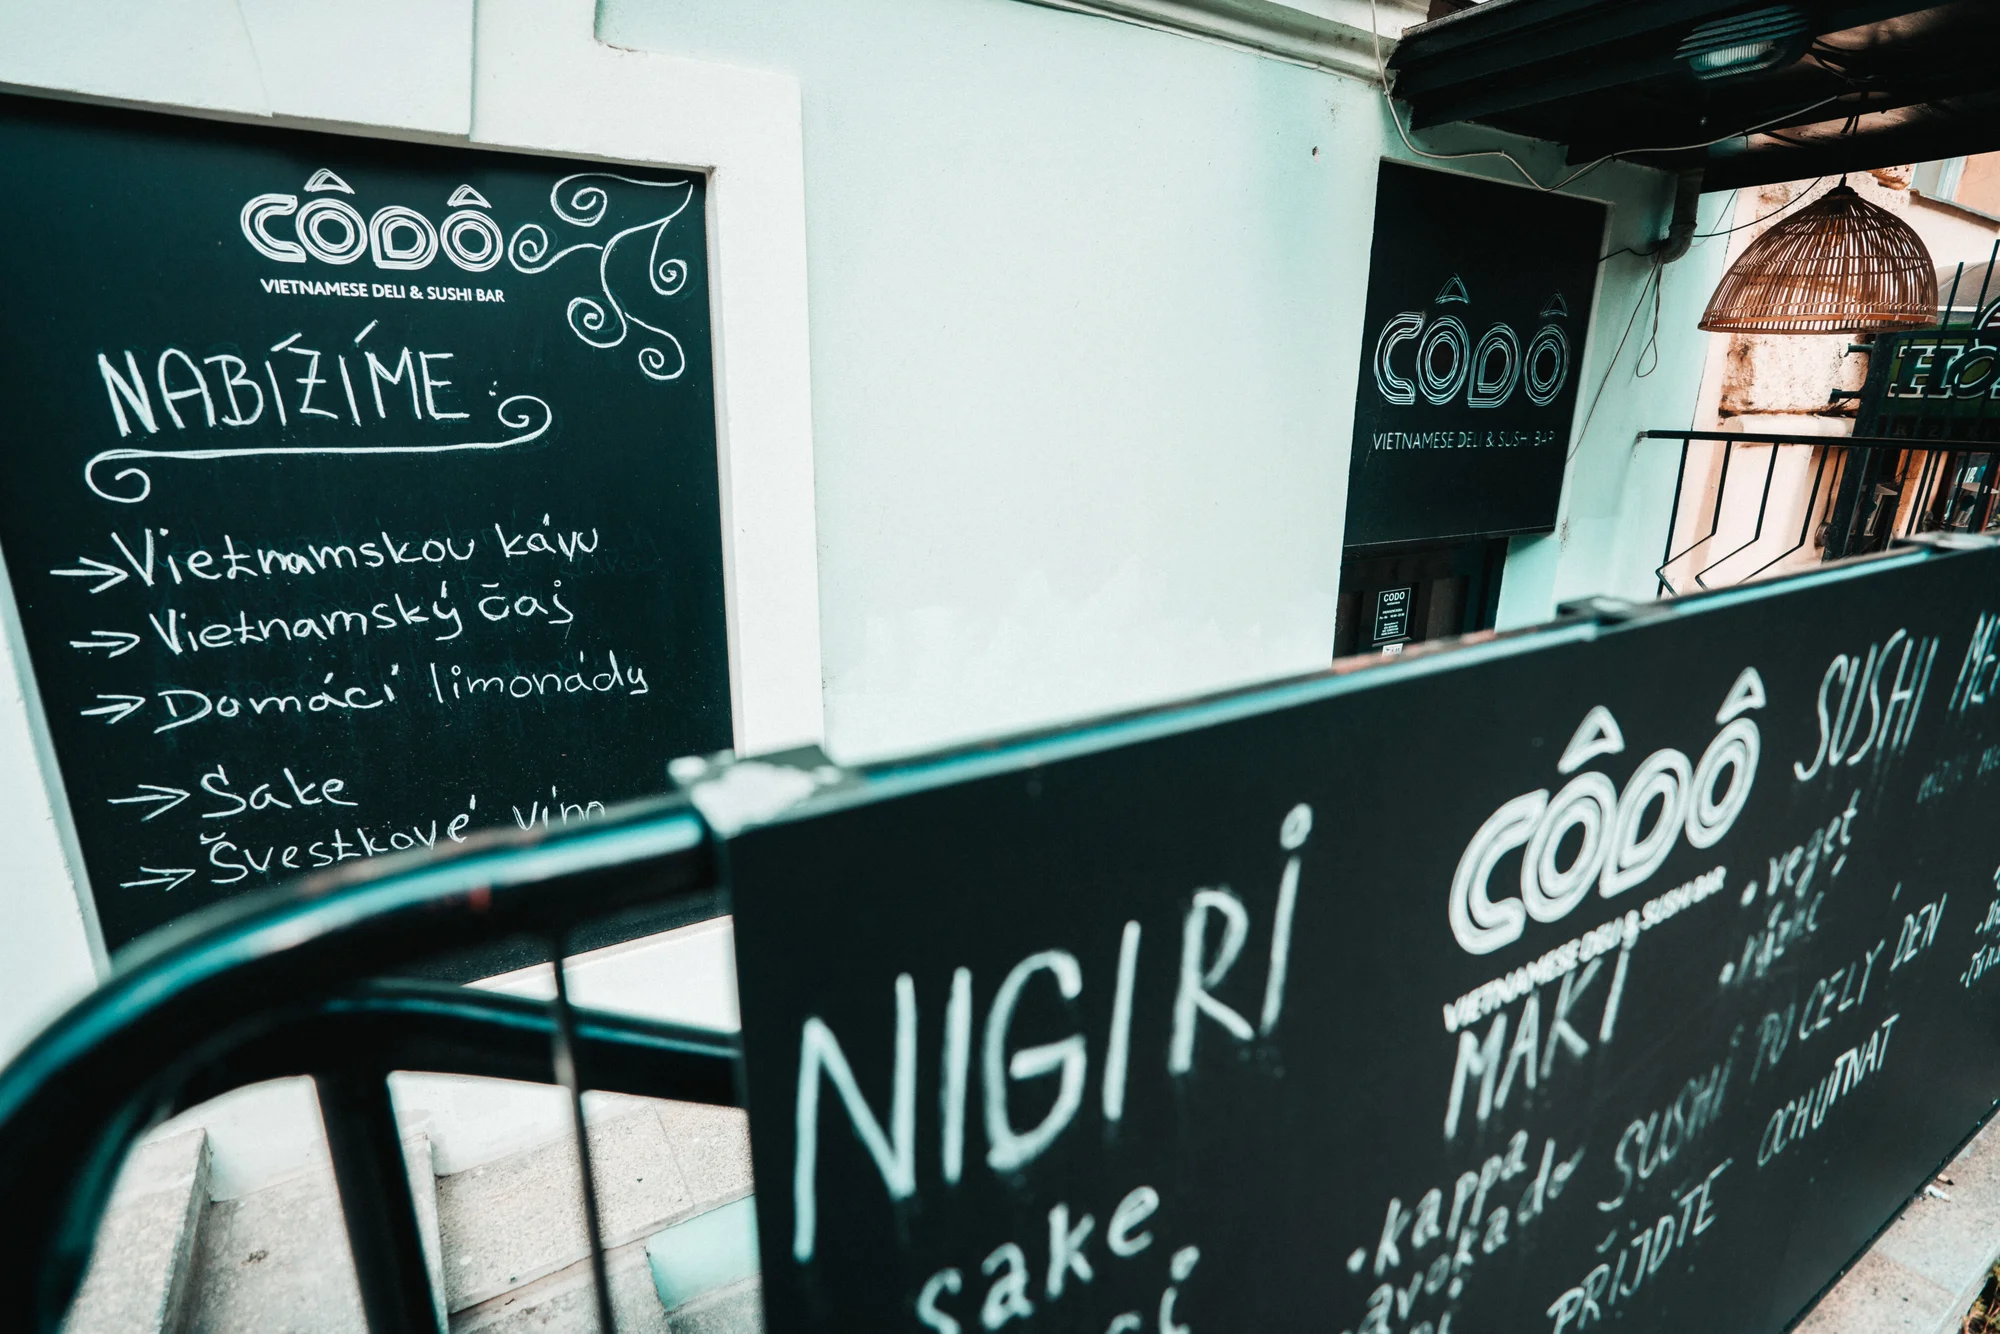 CÔDÔ
VIETNAMESE DELI & SUSHI BAR
NABÍZÍME:
→Vietnamskou kávu
→Vietnamský čaj
→Domácí limonády
→Sake
→Švestkové víno
CÔDÔ
VIETNAMESE DELI & SUSHI BAR
CODO
CÔDÔ
VIETNAMESE DELI & SUSHI BAR
SUSHI
NIGIRI
sake
MAKI
•kappa
avokado
•veget
SUSHI PO CELÝ DEN
PŘIJĎTE OCHUTNAT